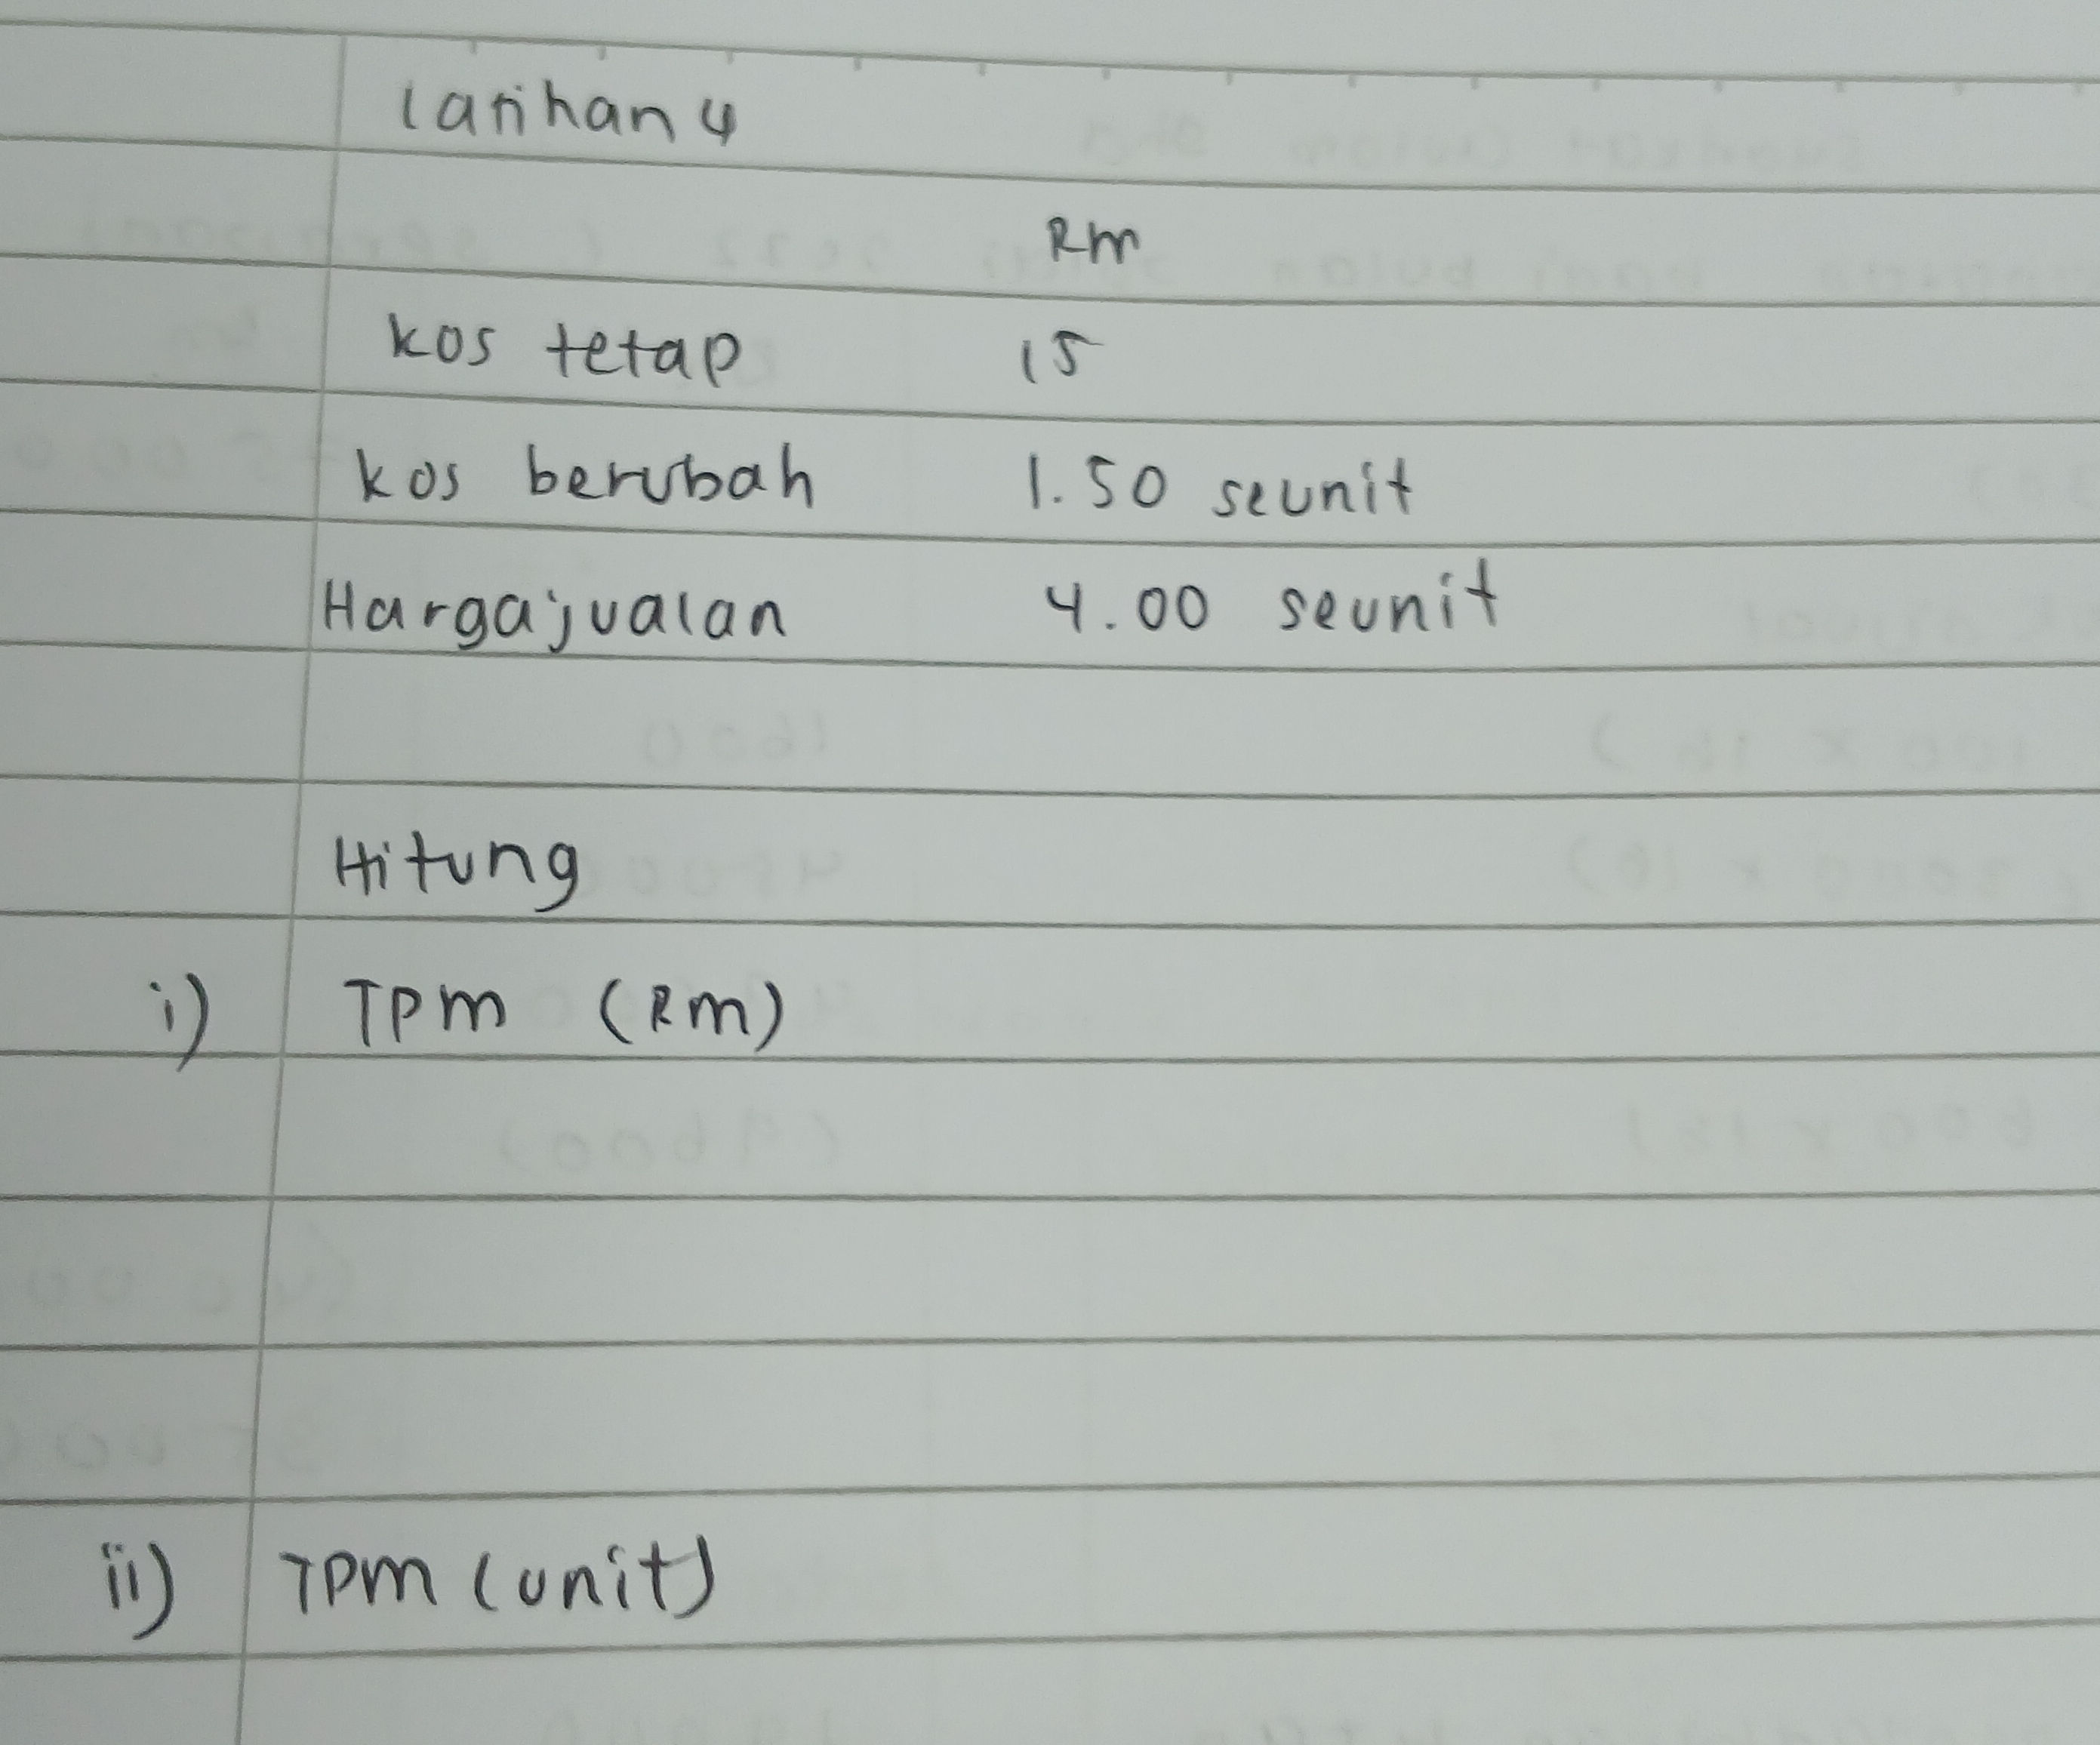 Latihan 4
Rm
kos tetap 15
kos berubah 1.50 seunit
Harga jualan 4.00 seunit
Hitung
i) TPm (Rm)
ii) TPm (unit)